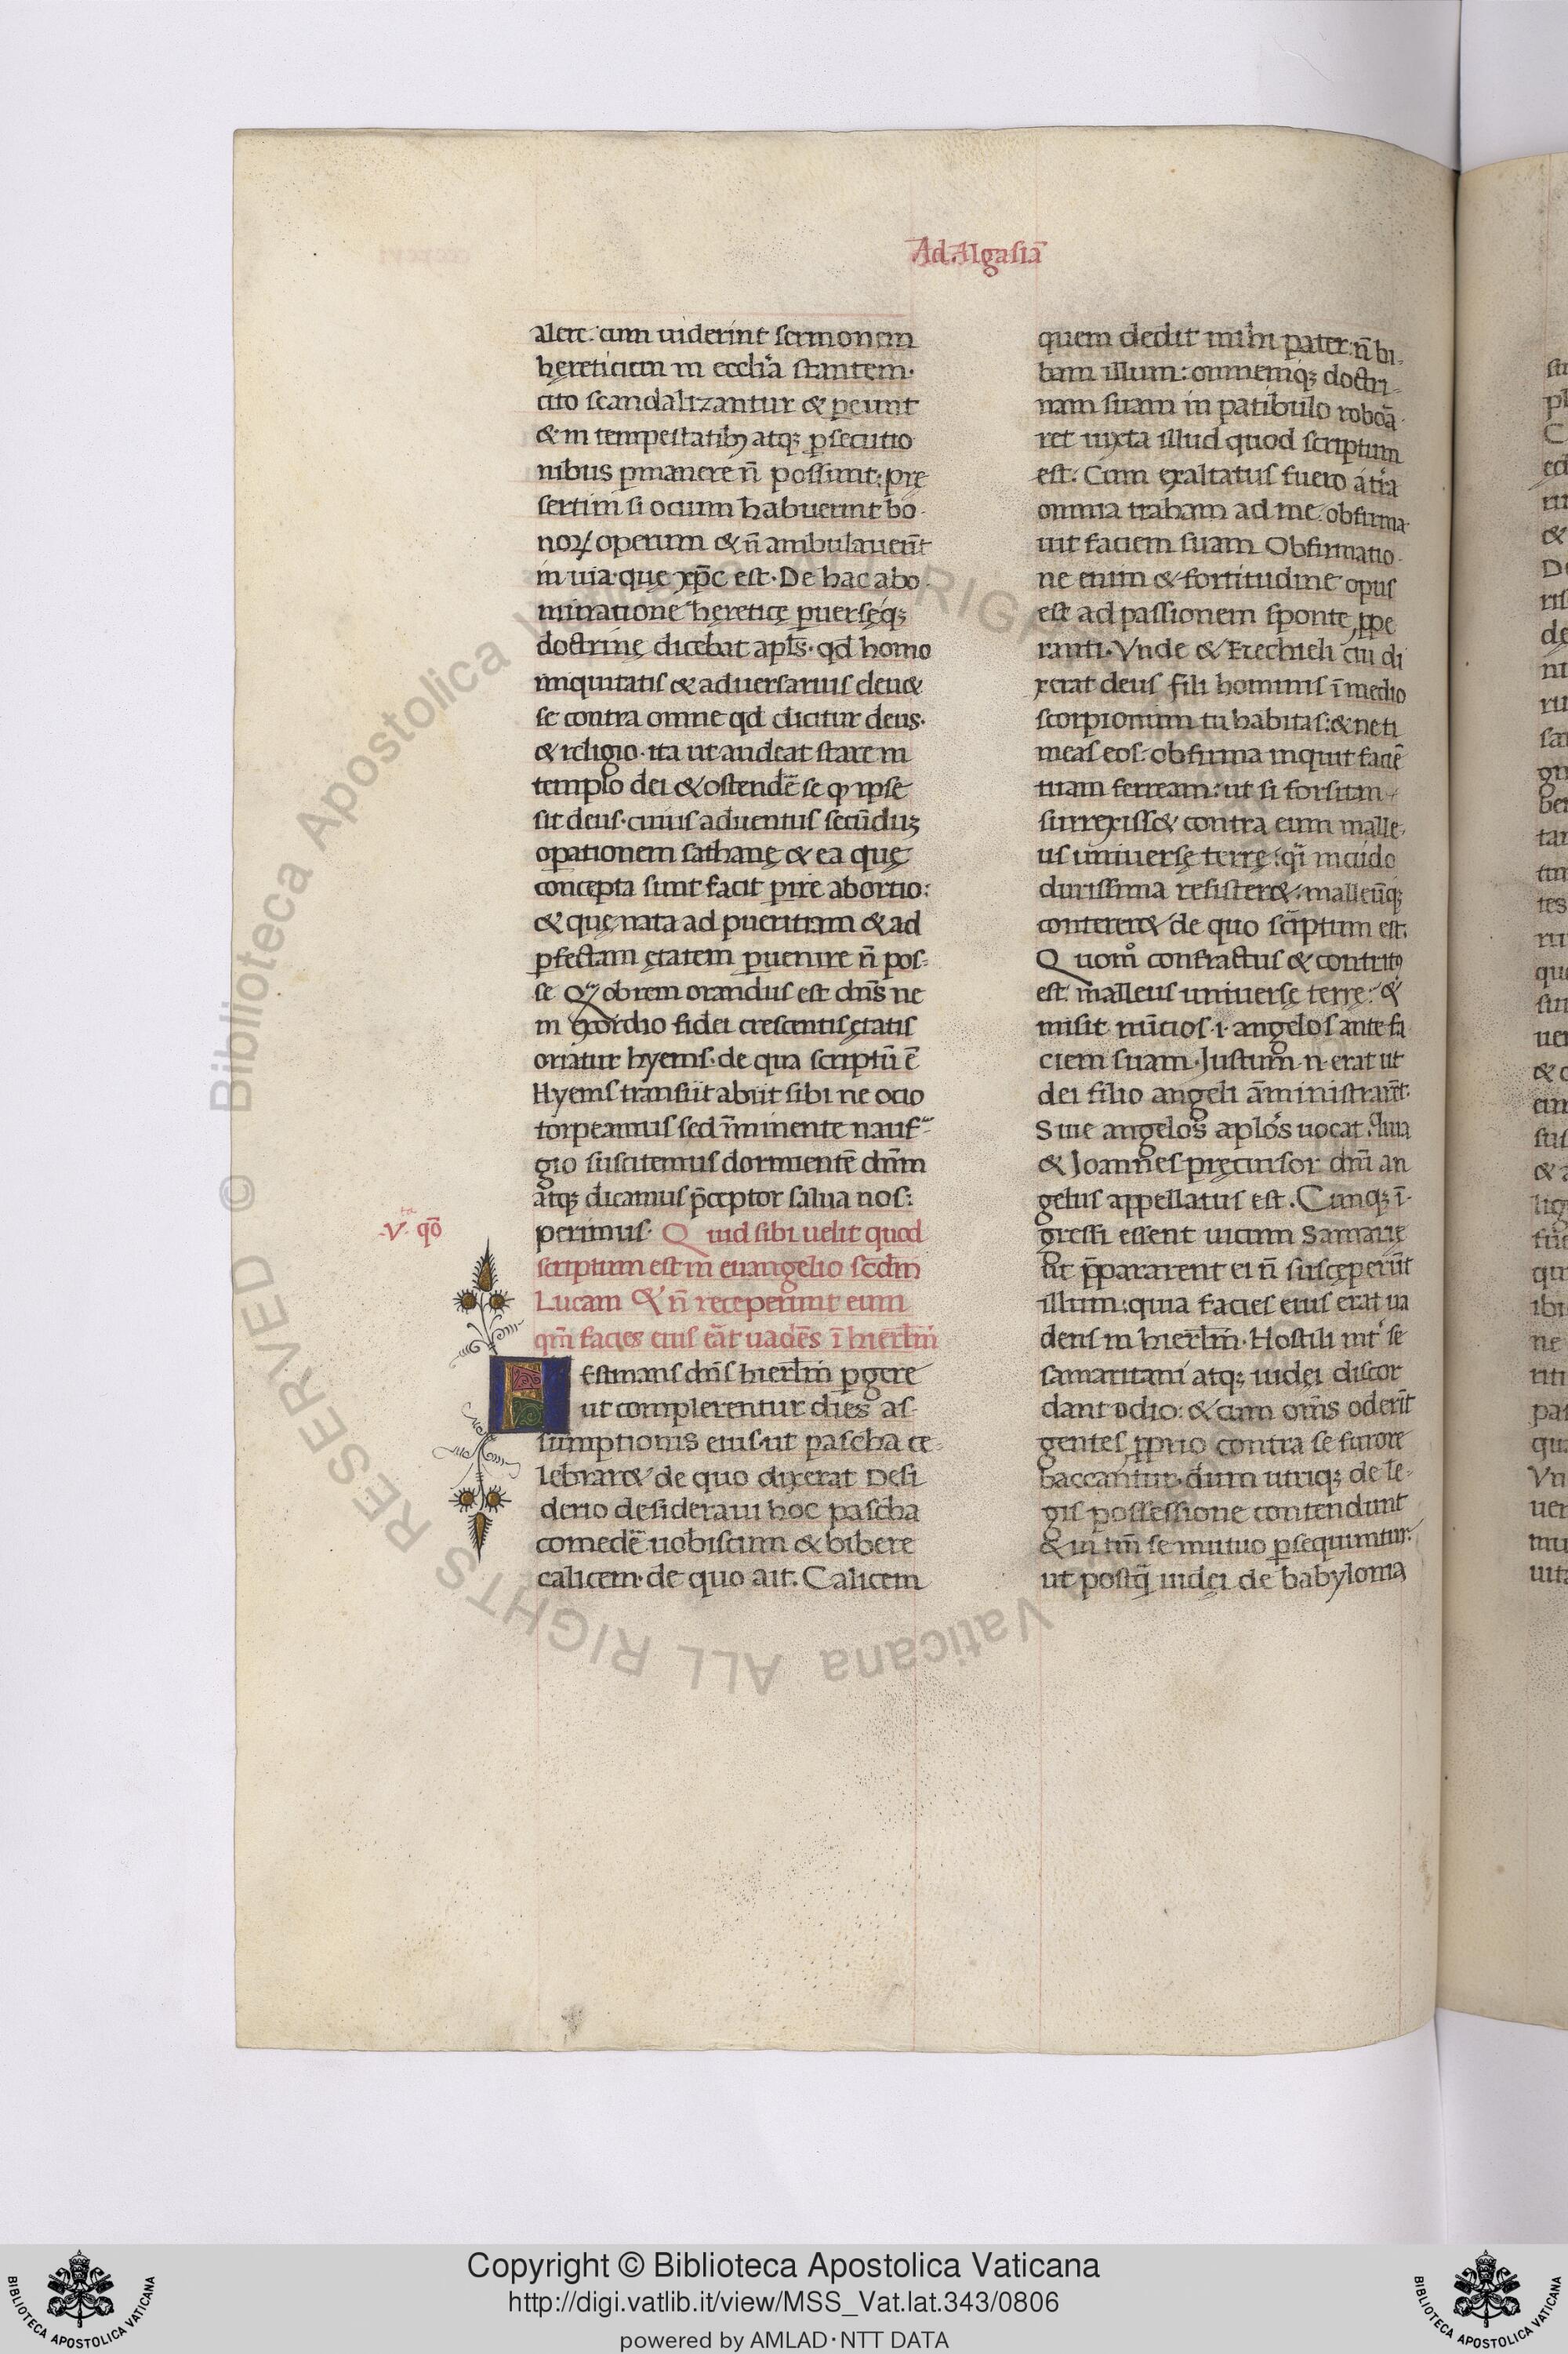 Ad Algasiā
alere. cum uiderint sermonem
hęreticum in eccl'ia stantem.
cito scandalizantur & p̱eunt
& in tempestatibꝫ atqꝫ p̱secutio
nibus p̱manere n̄ possunt: pre
sertim si ocium habuerint bo-
noꝝ operum & n̄ ambulauerīt
in uia que xp̄c est. De hac abo-
minatione hęretice p̱uerseqꝫ
doctrinę dicebat apl's. qd homo
iniquitatis & aduersarius eleu&
se contra omne qd dicitur deus.
& religio. ita ut audeat stare in
templo dei & ostendē se ꝙ ipse
sit deus. cuius aduentus secūduꝫ
op̱ationem sathanę & ea quę
concepta sunt facit p̱ire abortio:
& quę nata ad pueritiam & ad
p̱fectam ętatem p̱uenire n̄ pos-
se Qꝫ ob rem orandus est dn̄s ne
in exordio fidei crescentis ętatis
oriatur hyems. de qua scriptū ē
Hyems transiit abiit sibi ne ocio
torpeamus sed īminente nauf-
gio suscitemus dormientē dn̄m
atqꝫ dicamus p̄ceptor salua nos:
perimus. Quid sibi uelit quod
scriptum est in euangelio scd̄m
Lucam & n̄ receperunt eum
qm̄ facies eius erat uadēs ī hierl'm
V. qō
Festinans dn̄s hierl'm p̱gere
ut complerentur dies as-
sumptionis eius. ut pascha ce-
lebrar& de quo dixerat Desi
derio desideraui hoc pascha
comedē uobiscum & bibere
calicem. de quo ait. Calicem
quem dedit mihi pater: n̄ bi-
bam illum: omnemqꝫ doctri-
nam suam in patibulo roboā
ret iuxta illud quod scriptum
est. Cum exaltatus fuero a t'ra
omnia traham ad me. obfirma-
uit faciem suam. Obfirmatio-
ne enim & fortitudine opus
est ad passionem sponte ꝓpe
ranti. Vnde & Ezechieli cui di
xerat deus fili hominis ī medio
scorpionum tu habitas: & ne ti
meas eos. obfirma inquit faciē
tuam ferream: ut si forsitan
surrexiss& contra eum malle-
us uniuersę terrę: qͥ incudo
durissima resister&. malleūqꝫ
conterer& de quo sc̄ptum est.
Quom° confractus & contritꝰ
est malleus uniuersę terrę: &
misit nūcios .i. angelos ante fa
ciem suam. Justum .n. erat ut
dei filio angeli āministrarēt.
Siue angelos aplo's uocat.
& Joannes precursor dn̄i an
gelus appellatus est. Cumqꝫ ī-
gressi essent uicum Samarię
ut p̄pararent ei n̄ susceperūt
illum: quia facies eius erat ua
dens in hierl'm. Hostili int' se
samaritani atqꝫ iudei discor
dant odio: & cum om̄s oderīt
gentes ꝓprio contra se furore
baccantur. dum utriqꝫ de le-
gis possessione contendunt
& in tm̄ se mutuo p̱sequuntur.
ut postq̄ iudei de babylonia
© Biblioteca Apostolica Vaticana ALL RIGHTS RESERVED
Copyright © Biblioteca Apostolica Vaticana
http://digi.vatlib.it/view/MSS_Vat.lat.343/0806
powered by AMLAD·NTT DATA
BIBLIOTECA APOSTOLICA VATICANA
BIBLIOTECA APOSTOLICA VATICANA